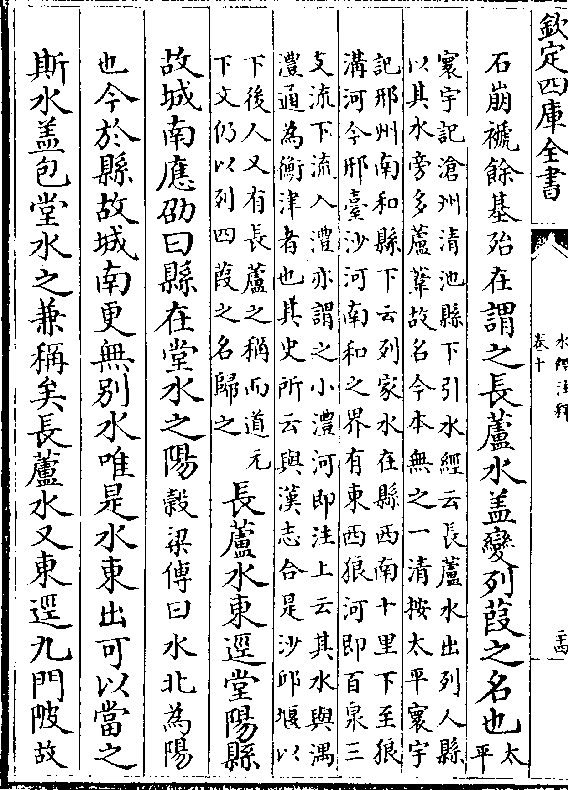 欽定四庫全書
水經注釋
卷十
二十四
石崩褫餘基殆在謂之長蘆水盖變列葭之名也太
平
寰宇記滄州清池縣下引水經云長蘆水出列人縣
以其水旁多蘆葦故名今本無之一清按太平寰宇
記邢州南和縣下云列家水在縣西南十里下至狼
溝河今邢臺沙河南和之界有東西狼河即百泉三
支流下流入澧亦謂之小澧河即注上云其水與湡
澧通為衡津者也其史所云與漢志合是沙邱堰以
下後人又有長蘆之稱而道元
下文仍以列四葭之名歸之
長蘆水東逕堂陽縣
故城南應劭曰縣在堂水之陽穀梁傳曰水北為陽
也今於縣故城南更無別水唯是水東出可以當之
斯水盖包堂水之兼稱矣長蘆水又東逕九門陂故